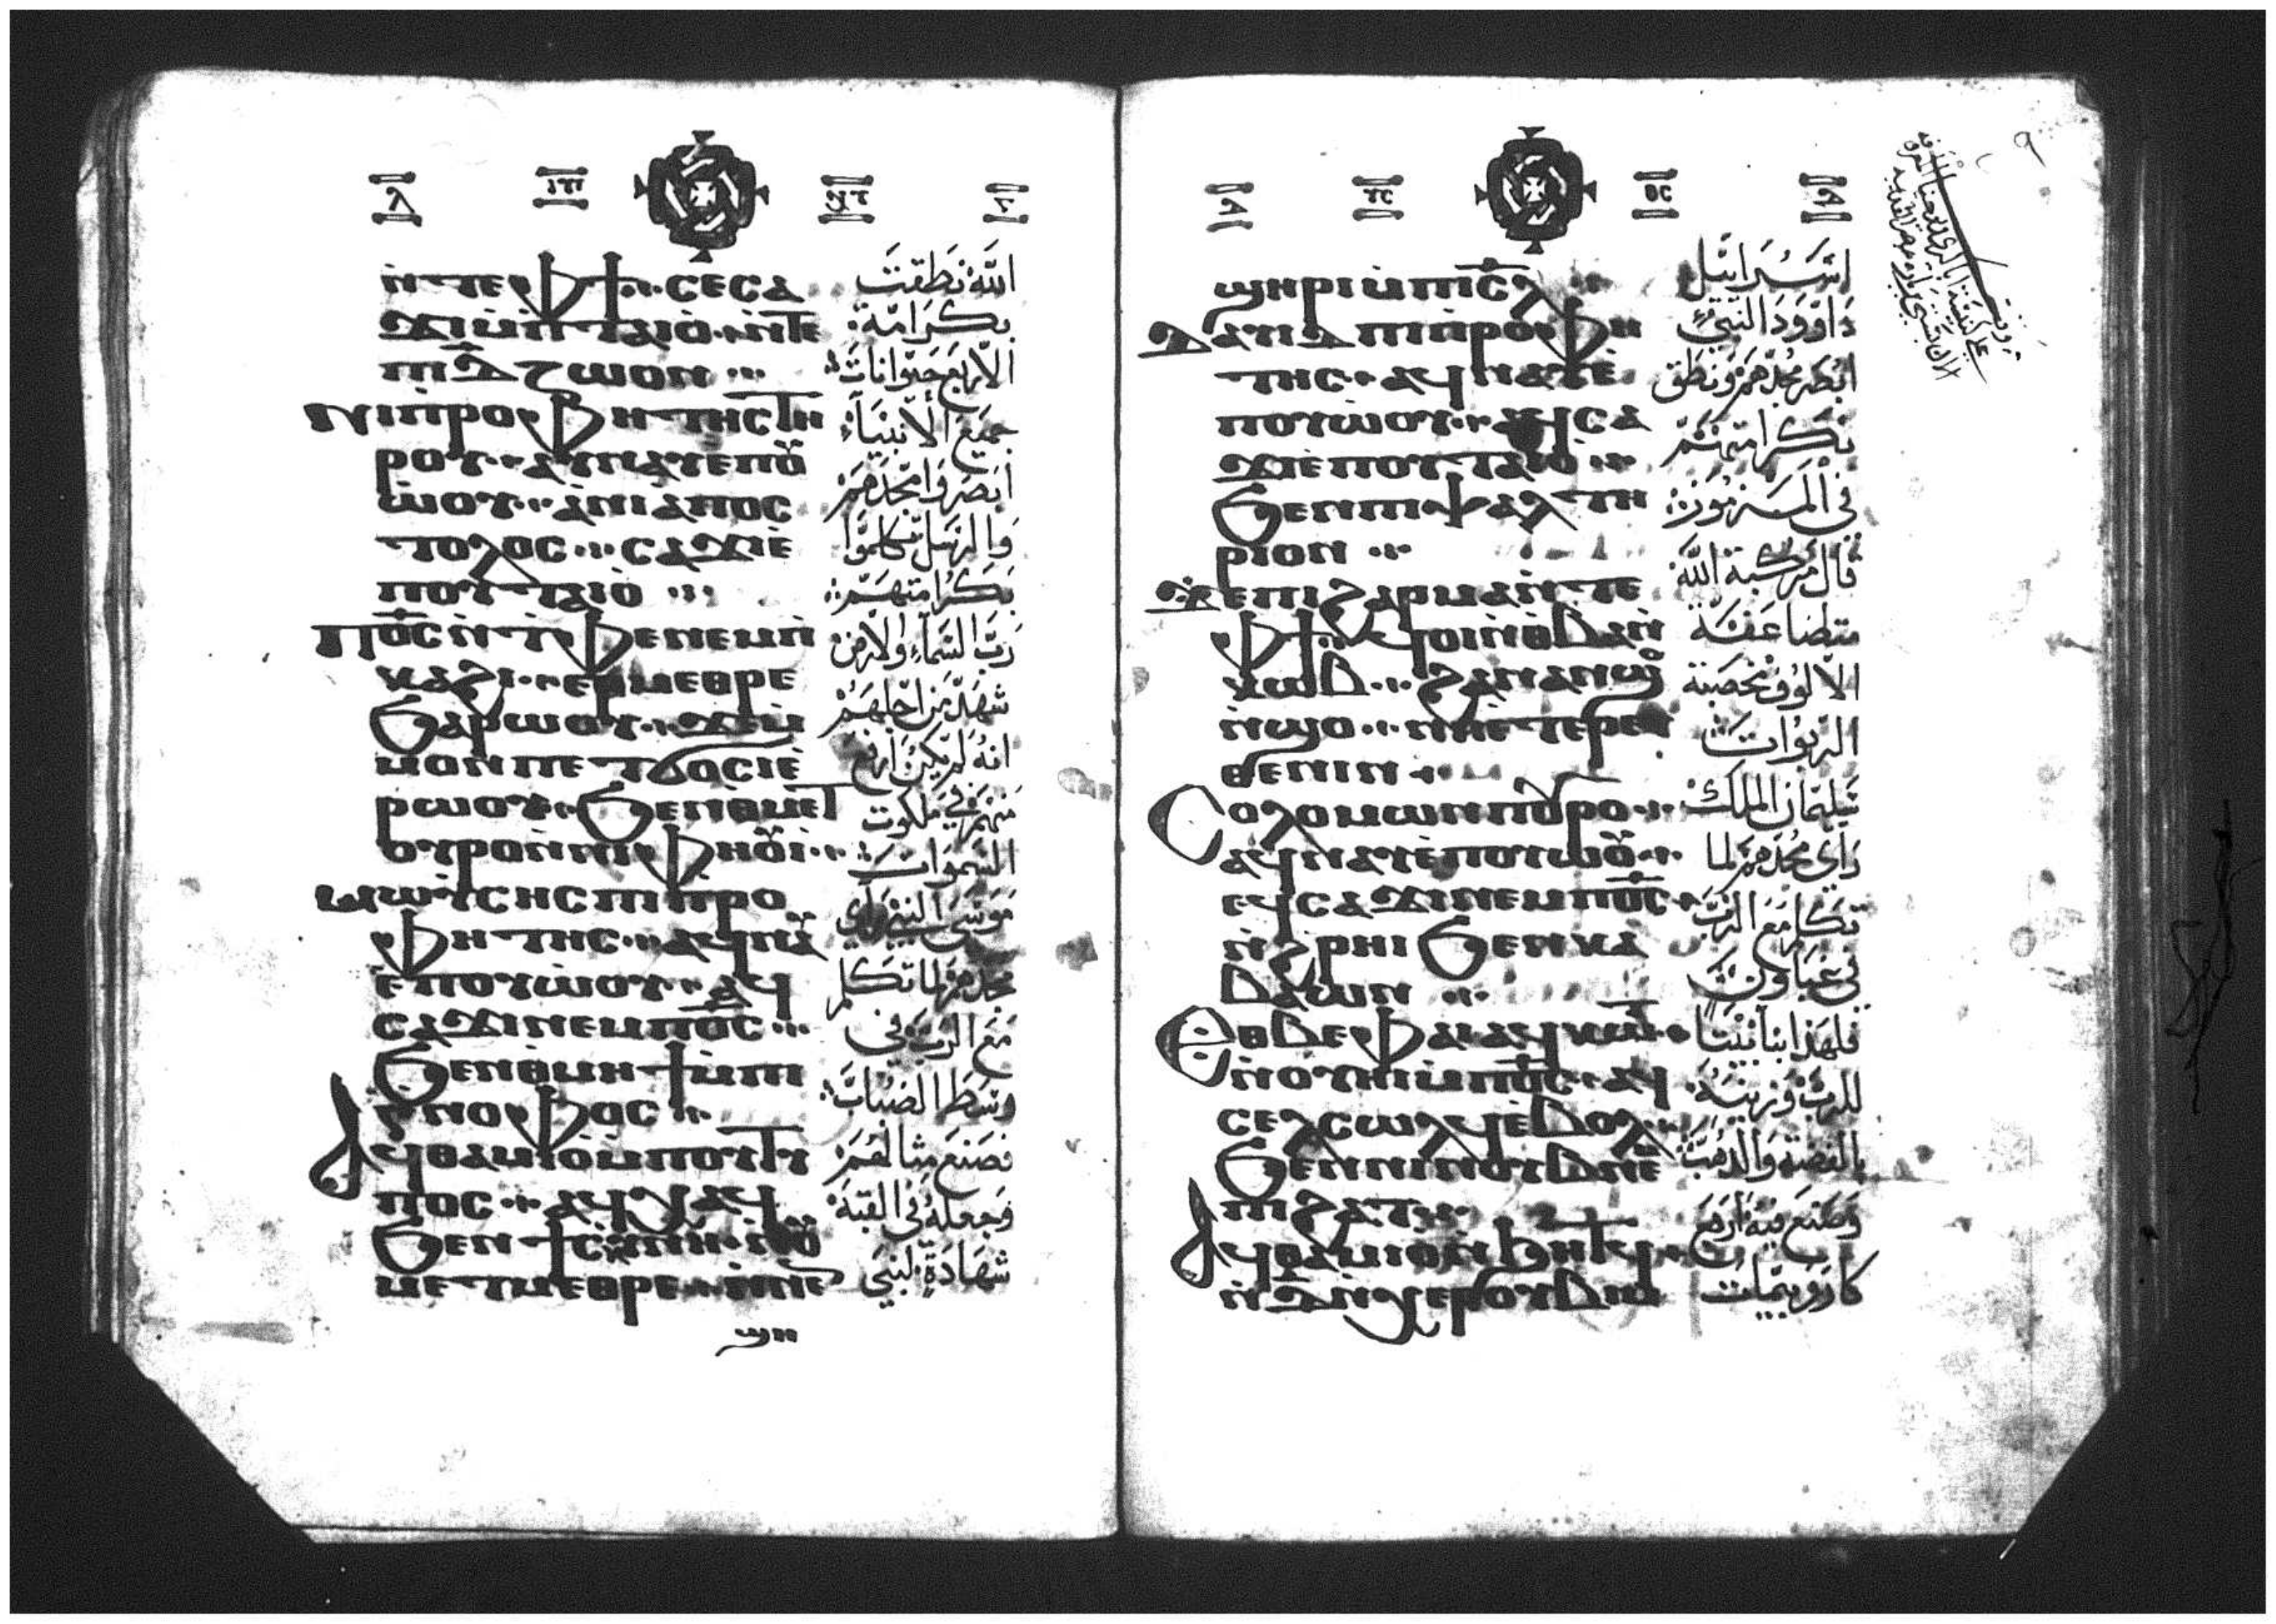 ⲛ̀ⲧⲉⲫϯ · ⲥⲉⲥⲁ
ϫⲓⲙ̀ⲡ̀ⲧⲁⲓⲟ̀ · ⲛ̀ⲧⲉ
ⲡⲓⲇ̅ⲛ̀ⲍⲱⲟⲛ
ⲛⲓⲡ̀ⲣⲟⲫⲏⲧⲏⲥⲧⲏ
ⲣⲟⲩ · ⲁⲩⲛⲁⲩⲉ̀ⲡⲟⲩ
ⲱ̀ⲟⲩ · ⲁ̀ⲛⲓⲁ̀ⲡⲟⲥ
ⲧⲟⲗⲟⲥ · ⲥⲁϫⲓⲉ̀
ⲡⲟⲩⲧⲁⲓⲟ̀
ⲡϭ̅ⲥ̅ⲛ̀ⲧ̀ⲫⲉⲛⲉⲙⲡ̀
ⲕⲁϩⲓ · ⲉϥⲙⲉⲑⲣⲉ
ϧⲁⲣⲱⲟⲩ · ϫⲉⲙ̀
ⲙⲟⲛⲡⲉⲧϭⲟⲥⲓⲉ̀
ⲣⲱⲟⲩ · ϧⲉⲛⲑⲙⲉⲧ
ⲟⲩⲣⲟⲛ̀ⲛⲓⲫⲏⲟⲩⲓ̀
ⲙⲱⲩ̀ⲥⲏⲥⲡⲓⲡ̀ⲣⲟ
ⲫⲏⲧⲏⲥ · ⲁϥⲛⲁⲩ
ⲉ̀ⲡⲟⲩⲱ̀ⲟⲩ · ⲁϥ
ⲥⲁϫⲓⲛⲉⲙⲡϭ̅ⲥ̅
ϧⲉⲛⲑ̀ⲙⲏϯⲙ̀ⲡⲓ
ⲅ̀ⲛⲟⲫⲟⲥ
ⲁϥⲑⲁⲙⲓⲟ̀ⲙ̀ⲡⲟⲩⲧⲩ
ⲡⲟⲥ · ⲁϥⲭⲁϥ
ϧⲉⲛϯⲥ̀ⲕⲩⲛⲏ
ⲙⲉⲧⲙⲉⲑⲣⲉ · ⲛ̀ⲛⲉⲛ
ϣⲏ
اللّه نطقت
بكرامة
الاربع حيوانات
جميع الانبياء
ابصروا مجدهم
والرسل تكلموا
بكرامتهم
رب السماء والارض
شهد من اجلهم
انه لم يكن ارفع
منهم في ملكوت
السموات
موسى النبي راي
مجدهم لما تكلم
مع الرب في
وسط الضباب
فصنع مثالهم
وجعله في القبة
شهادة لبني
ϣⲏⲣⲓⲙ̀ⲡⲓⲥ̅ⲗ̅
ⲇⲁⲩⲓⲇⲡⲓⲡ̀ⲣⲟⲫⲏ
ⲧⲏⲥ · ⲁϥⲛⲁⲩⲉ̀
ⲡⲟⲩⲱⲟⲩ · ⲁϥⲥⲁ
ϫⲓⲉ̀ⲡⲟⲩⲧⲁⲓⲟ̀
ϧⲉⲛⲡⲓⲯⲁⲗⲧⲏ
ⲣⲓⲟⲛ
ϫⲉⲡⲓϩⲁⲣⲙⲁⲛ̀ⲧⲉ
ⲫϯ · ϥⲟⲓⲛ̀ⲑⲃⲁⲛ̀
ⲕⲱⲃ · ϩⲁⲛⲁⲛϣⲟ
ⲛ̀ϣⲟ · ⲛⲏⲉⲧⲉⲣⲉⲩ
ⲑⲉⲛⲓⲛ
ⲥⲟⲗⲟⲙⲱⲛⲡⲟⲩⲣⲟ
ⲁϥⲛⲁⲩⲉ̀ⲡⲟⲩⲱⲟⲩ
ⲉϥⲥⲁϫⲓⲛⲉⲙⲡϭ̅ⲥ̅
ⲛ̀ϩ̀ⲣⲏⲓϧⲉⲛⲕⲁ
ⲃⲁⲱⲛ
ⲉⲑⲃⲉⲫⲁⲓⲁϥⲕⲱⲧ
ⲛ̀ⲟⲩⲏⲓⲙ̀ⲡϭ̅ⲥ̅ · ⲁϥ
ⲥⲉⲗⲥⲱⲗϥⲉ̀ⲃⲟⲗ
ϧⲉⲛⲛⲓⲛⲟⲩⲃⲛⲉⲙ
ⲡⲓϩⲁⲧ
ⲁϥⲑⲁⲙⲓⲟⲛ̀ϧⲏⲧϥ
ⲛ̀ⲇ̅ⲛ̀ⲭⲉⲣⲟⲩⲃⲓⲙ
اسرائيل
داوود النبي
ابصر مجدهم ونطق
بكرامتهم
في المزمور
قال مركبة الله
متضاعفة
الالوف مخصبة
الربوات
سليمان الملك
راي مجدهم لما
تكلم مع الرب
في غباوون
فلهذا ابنا بيتا
للرب وزينه
بالفضة والذهب
وصنع فيه اربع
كاروبيمات